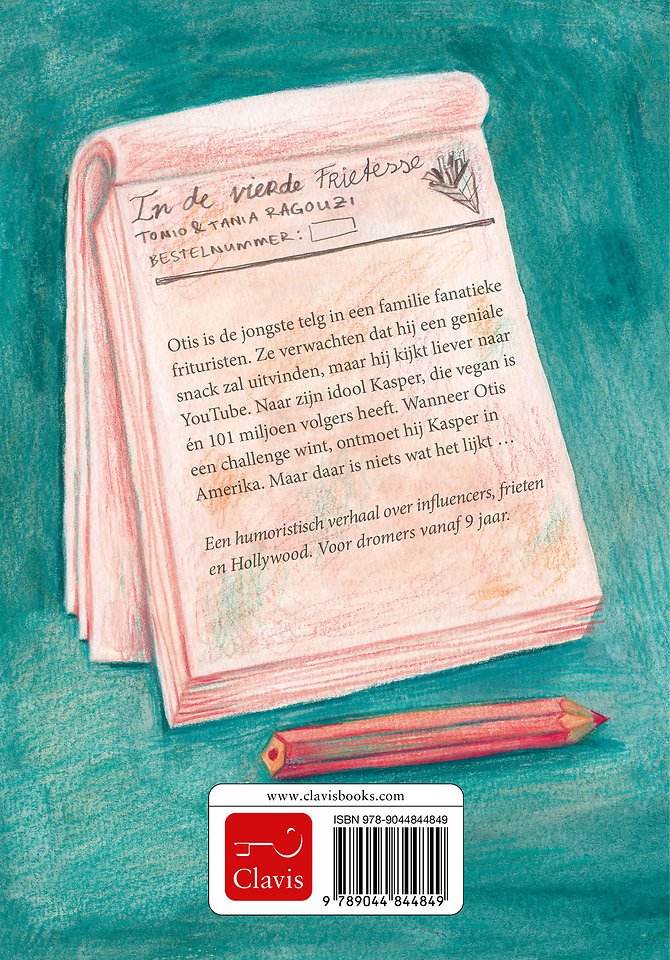 In de vierde Frietesse
TONIO & TANIA RAGOUZI
BESTELNUMMER:
Otis is de jongste telg in een familie fanatieke
frituristen. Ze verwachten dat hij een geniale
snack zal uitvinden, maar hij kijkt liever naar
YouTube. Naar zijn idool Kasper, die vegan is
én 101 miljoen volgers heeft. Wanneer Otis
een challenge wint, ontmoet hij Kasper in
Amerika. Maar daar is niets wat het lijkt …
Een humoristisch verhaal over influencers, frieten
en Hollywood. Voor dromers vanaf 9 jaar.
www.clavisbooks.com
ISBN 978-9044844849
Clavis
9 789044 844849